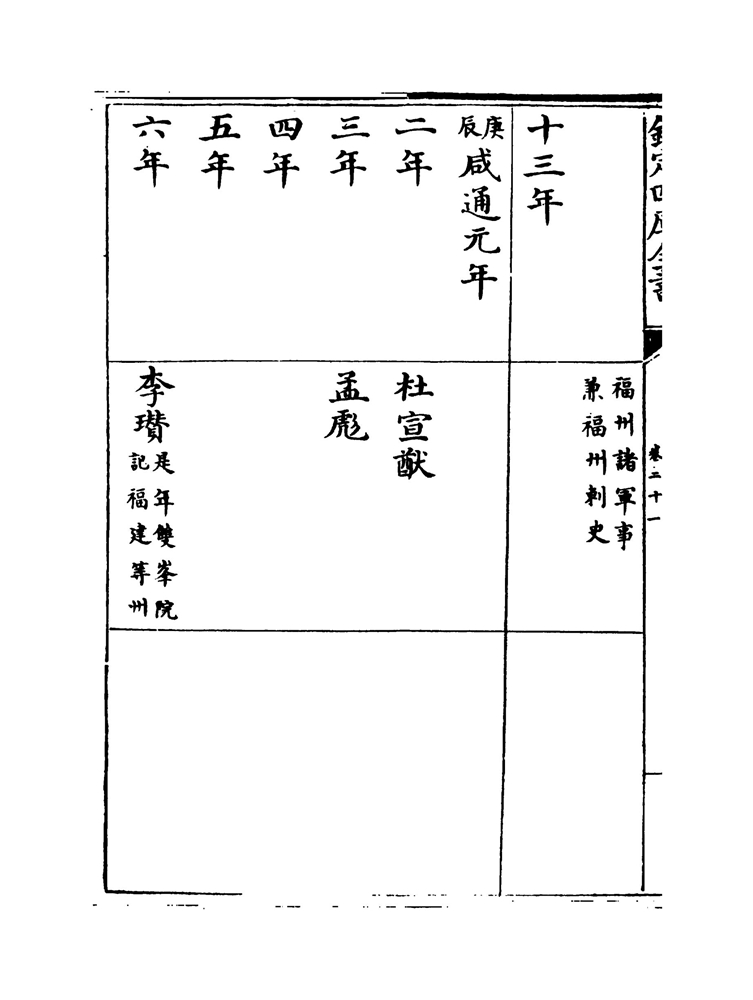 欽定四庫全書
卷二十一
福州諸軍事
兼福州刺史
十三年
庚辰咸通元年
二年
杜宣猷
三年
孟彪
四年
五年
六年
李瓚是年雙峯院
記福建等州